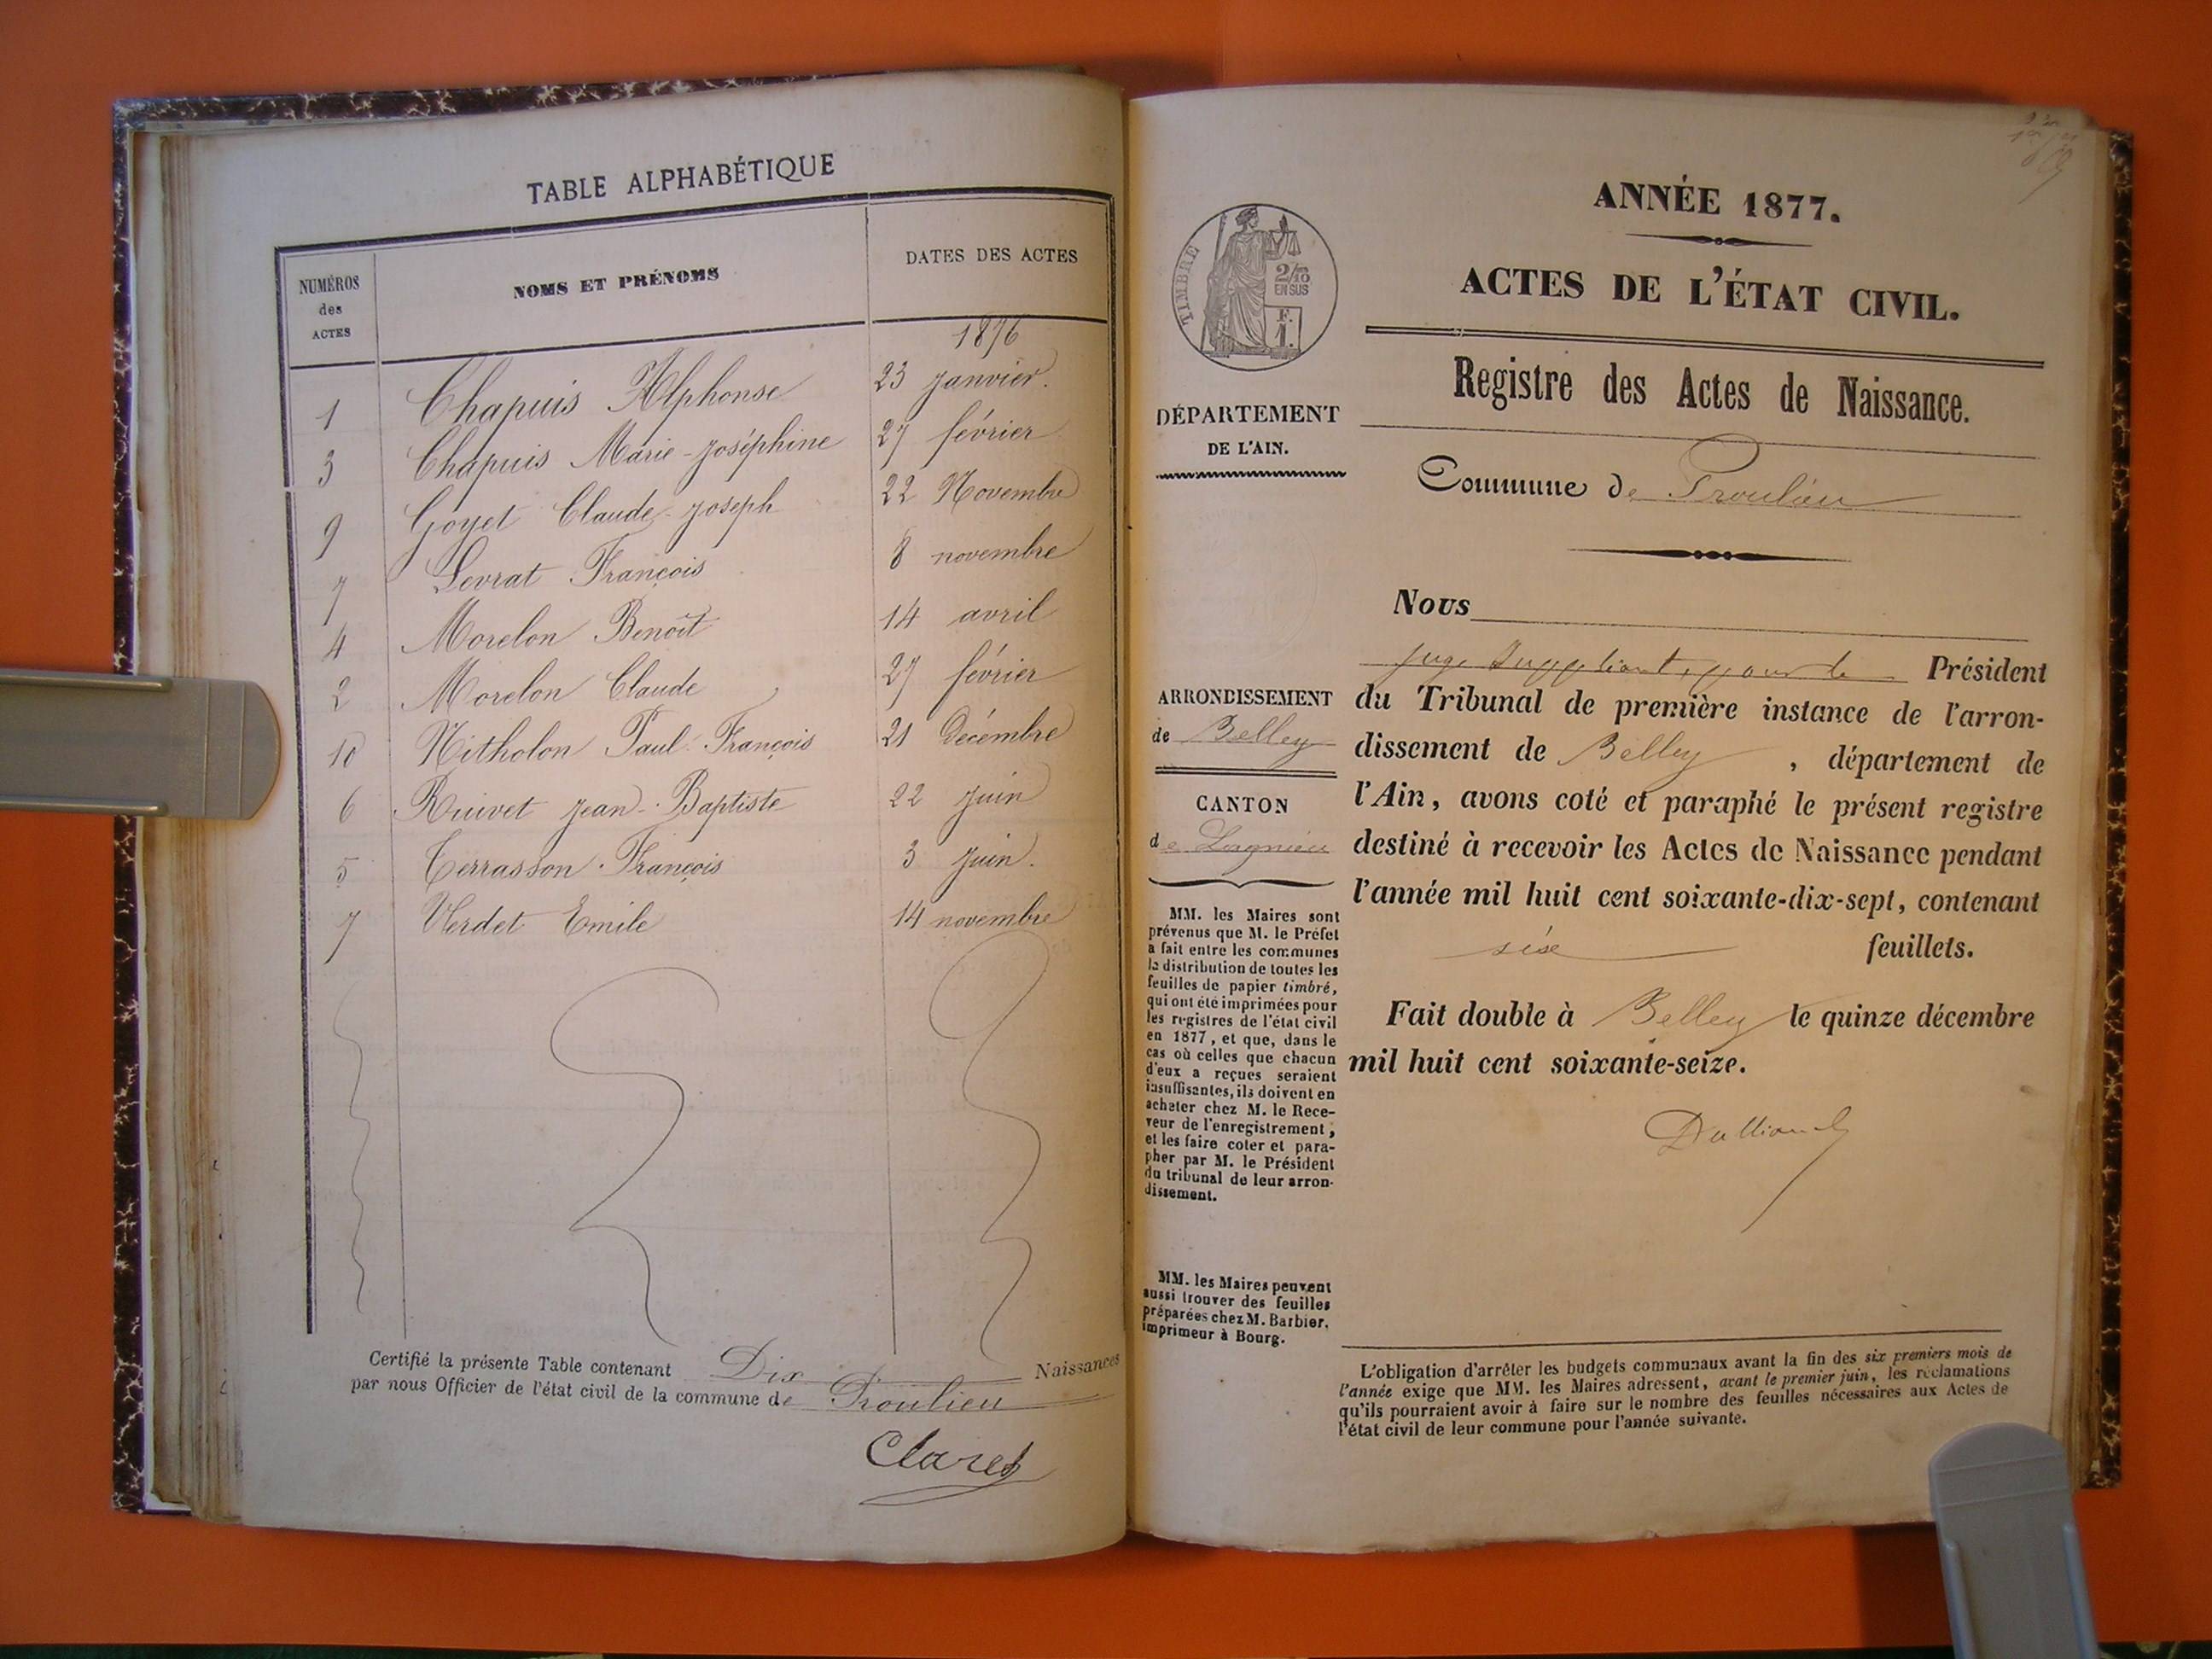 TABLE ALPHABÉTIQUE
NUMÉROS
des
ACTES
NOMS ET PRÉNOMS
DATES DES ACTES
1876
1 Chapuis Alphonse 23 janvier.
3 Chapuis Marie-joséphine 27 février
9 Goyet Claude-joseph 22 Novembre
7 Levrat François 8 novembre
4 Morelon Benoît 14 avril
2 Morelon Claude 27 février
10 Nitholon Paul François 21 Décembre
6 Ruivet jean-Baptiste 22 juin
5 Terrasson François 3 juin.
7 Verdet Emile 14 novembre
Certifié la présente Table contenant Dix Naissances
par nous Officier de l'état civil de la commune de Proulieu
Claret
ANNÉE 1877.
ACTES DE L'ÉTAT CIVIL.
Registre des Actes de Naissance.
Commune de Proulieu
TIMBRE
2/10
EN SUS
F.
1.
DÉPARTEMENT
DE L'AIN.
ARRONDISSEMENT
de Belley
CANTON
de Lagnieu
MM. les Maires sont
prévenus que M. le Préfet
a fait entre les communes
la distribution de toutes les
feuilles de papier timbré,
qui ont été imprimées pour
les registres de l'état civil
en 1877, et que, dans le
cas où celles que chacun
d'eux a reçues seraient
insuffisantes, ils doivent en
acheter chez M. le Rece-
veur de l'enregistrement;
et les faire coter et para-
pher par M. le Président
du tribunal de leur arron-
dissement.
MM. les Maires peuvent
aussi trouver des feuilles
préparées chez M. Barbier,
imprimeur à Bourg.
NOUS
juge suppléant, pour le Président
du Tribunal de première instance de l'arron-
dissement de Belley, département de
l'Ain, avons coté et paraphé le présent registre
destiné à recevoir les Actes de Naissance pendant
l'année mil huit cent soixante-dix-sept, contenant
sise feuillets.
Fait double à Belley le quinze décembre
mil huit cent soixante-seize.
L'obligation d'arrêter les budgets communaux avant la fin des six premiers mois de
l'année exige que MM. les Maires adressent, avant le premier juin, les réclamations
qu'ils pourraient avoir à faire sur le nombre des feuilles nécessaires aux Actes de
l'état civil de leur commune pour l'année suivante.